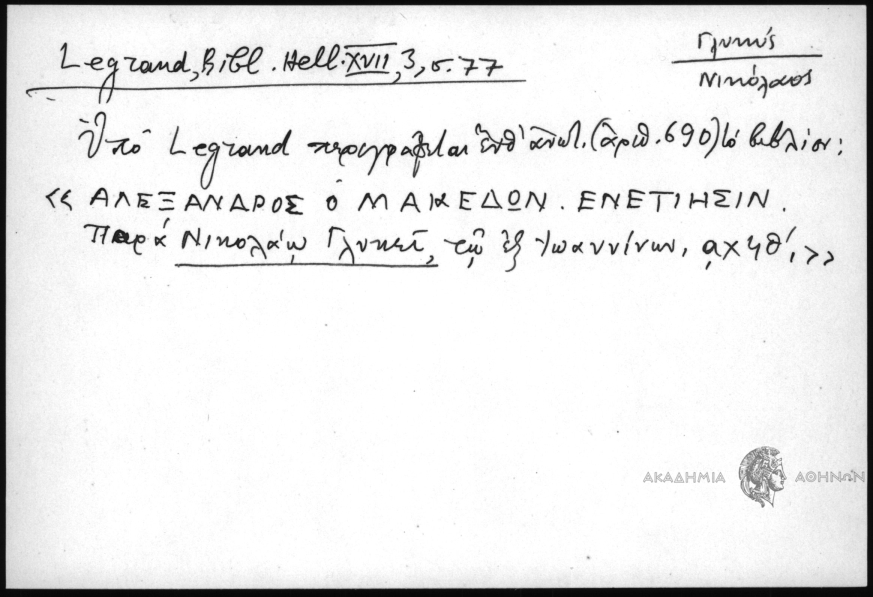 Legrand, Bibl. Hell. XVII, 3, σ. 77
Γλυκύς
Νικόλαος
Ὑπό Legrand περιγράφεται ἐνθ' ἀνωτ. (ἀριθ. 690) τό βιβλίον:
<< ΑΛΕΞΑΝΔΡΟΣ Ὁ ΜΑΚΕΔΩΝ. ΕΝΕΤΙΗΣΙΝ.
Παρά Νικολάῳ Γλυκεῖ, τῷ ἐξ Ἰωαννίνων, ͵αχϟθ΄, >>
ΑΚΑΔΗΜΙΑ ΑΘΗΝΩΝ